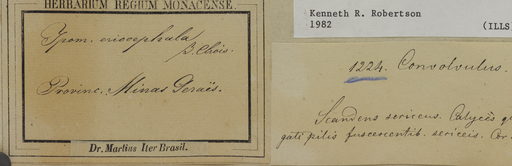 HERBARIUM REGIUM MONACENSE.
Ipom. eriocephala
β. Chois.
Provinc. Minas Geraës.
Dr. Martius Iter Brasil.
Kenneth R. Robertson
1982 (ILLS)
1224. Convolvulus.
Scandens sericeus. Calycės
gati pilis fuscescentib. sericeis. Cor.